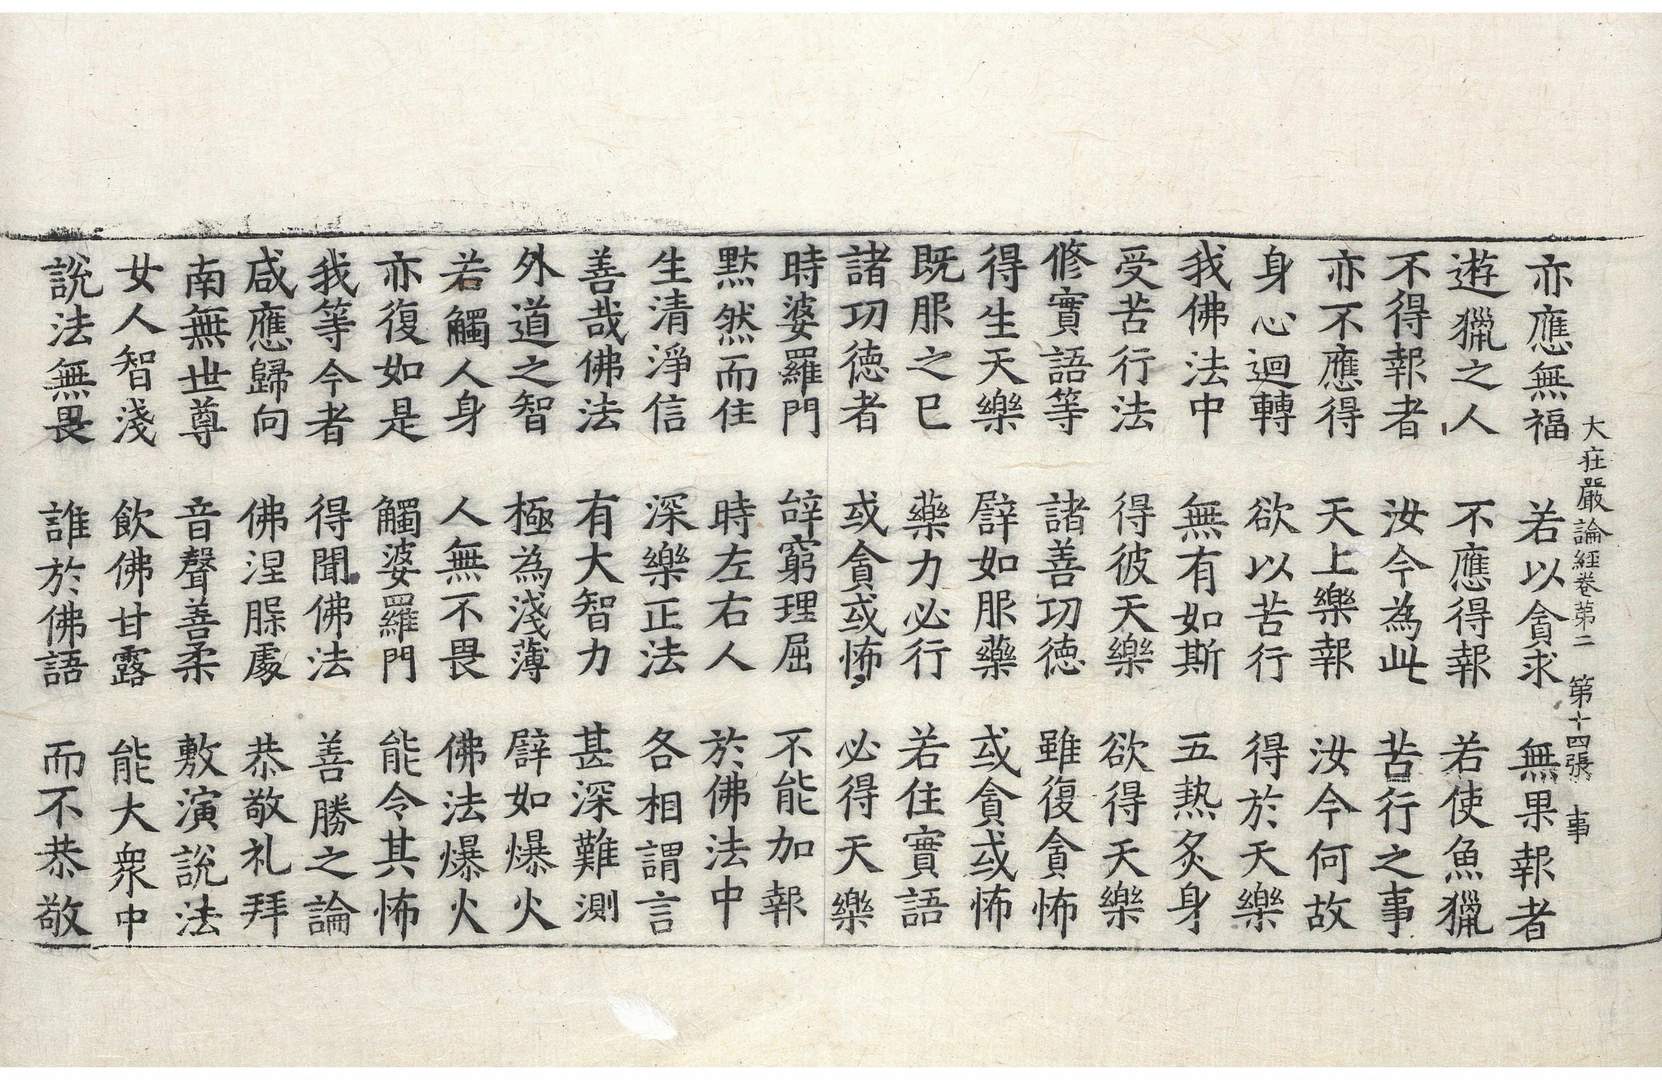 大莊嚴論經卷第二 第十四張 事
亦應無福 若以貪求 無果報者
遊獵之人 不應得報 若使魚獵
不得報者 汝今為此 苦行之事
亦不應得 天上樂報 汝今何故
身心迴轉 欲以苦行 得於天樂
我佛法中 無有如斯 五熱炙身
受苦行法 得彼天樂 欲得天樂
修實語等 諸善功德 雖復貪怖
得生天樂 譬如服藥 或貪或怖
既服之已 藥力必行 若住實語
諸功德者 或貪或怖 必得天樂
時婆羅門 辝窮理屈 不能加報
默然而住 時左右人 於佛法中
生清淨信 深樂正法 各相謂言
善哉佛法 有大智力 甚深難測
外道之智 極為淺薄 譬如爆火
若觸人身 人無不畏 佛法爆火
亦復如是 觸婆羅門 能令其怖
我等今者 得聞佛法 善勝之論
咸應歸向 佛涅脲處 恭敬礼拜
南無世尊 音聲善柔 敷演說法
女人智淺 飲佛甘露 能大眾中
說法無畏 誰於佛語 而不恭敬